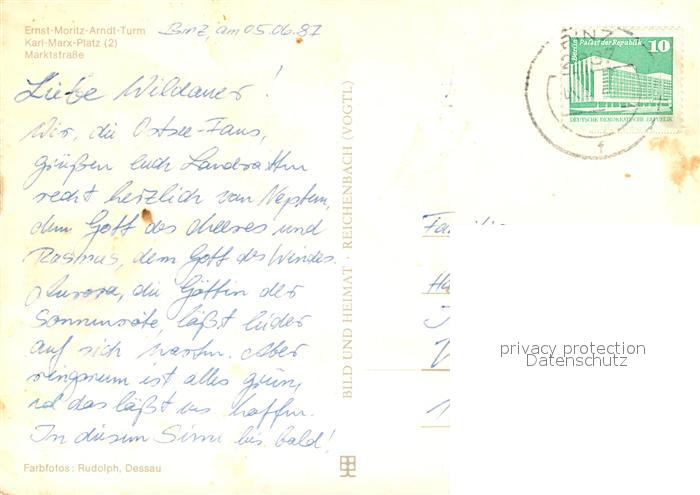 Ernst-Moritz-Arndt-Turm
Karl-Marx-Platz (2)
Marktstraße
Binz, am 05.06.87
Liebe Wildauer!
Wir, die Ostsee-Fans,
grüßen euch Landratten
recht herzlich von Neptun,
dem Gott des Meeres und
Rasmus, dem Gott des Windes.
Aurora, die Göttin der
Sonnenröte, läßt leider
auf sich warten. Aber
ringsrum ist alles grün,
und das läßt uns hoffen.
In diesem Sinne bis bald!
Farbfotos: Rudolph, Dessau
BILD UND HEIMAT · REICHENBACH (VOGTL)
Berlin Palast der Republik 10
DEUTSCHE DEMOKRATISCHE REPUBLIK
BINZ
privacy protection
Datenschutz